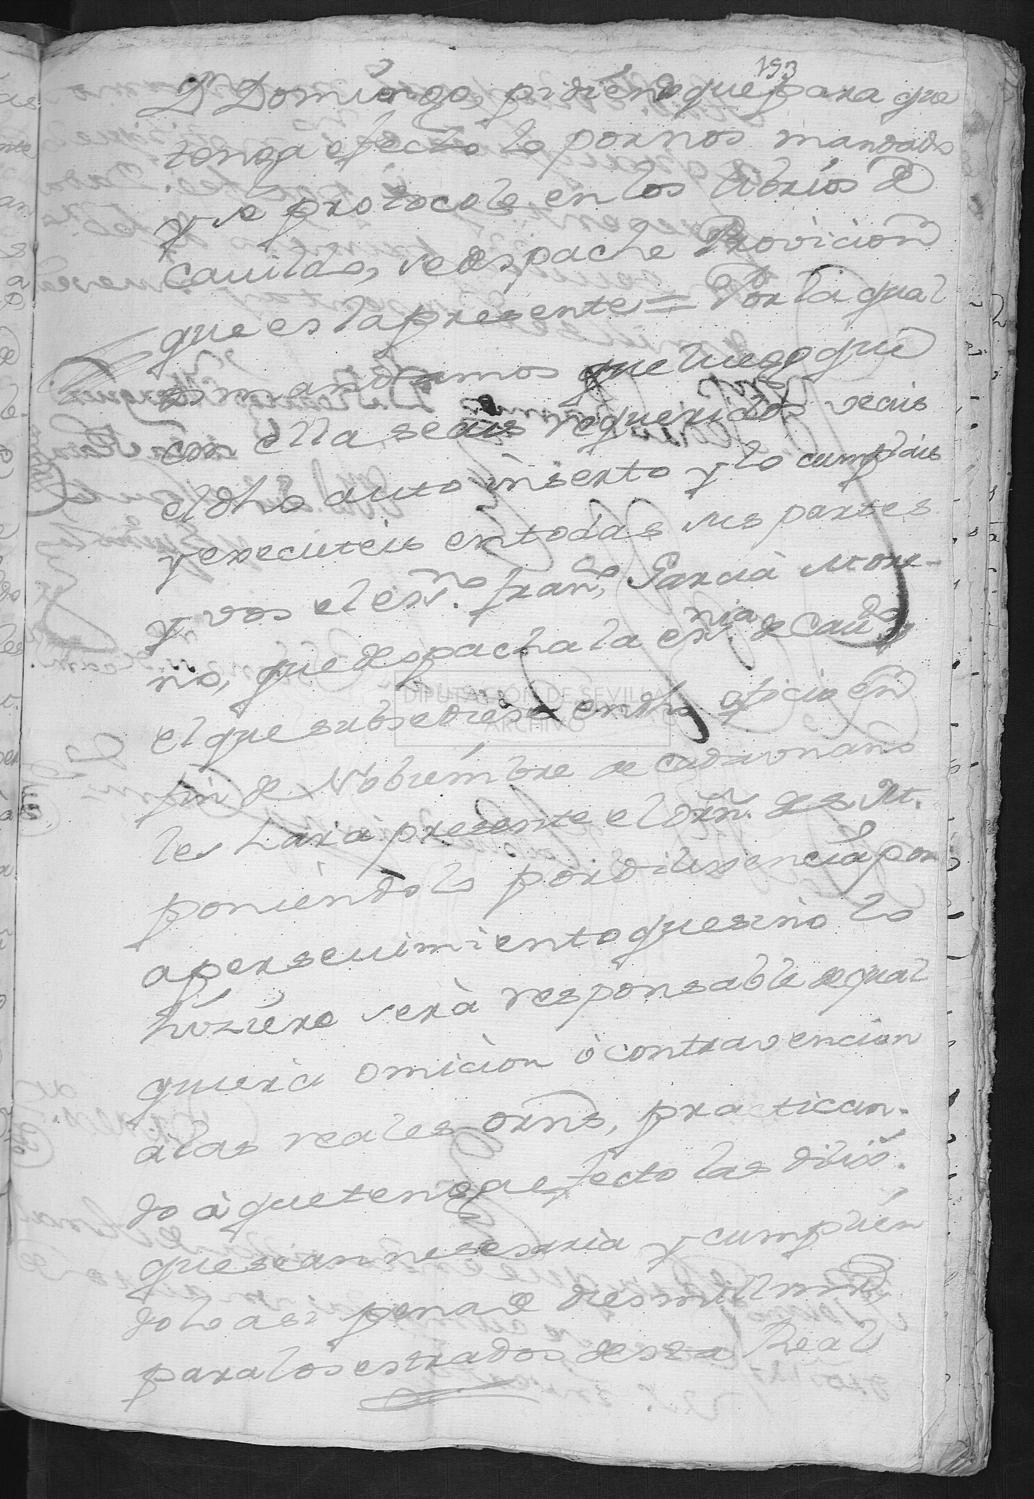 153
Dⁿ Domingo, pidiendo que para que
tenga efecto lo por nos mandado
y se protocole en los libros de
cauildo, se despache Provicion
que es la presente = Por la qual
os mandamos que luego que
con ella seais requeridos veais
el dho auto inserto y lo cumplais
y executeis en todas sus partes
y vos el esⁿº. franᶜº Garcia More-
no, que despacha la esⁿⁱᵃ de Cauᵈº y
el que subsediese en dho oficio en
fin de Nobiembre de cada un año
le hara presente el orñ. de s. M.
poniendolo por diligencia, con
apersevimiento que sino lo
hiziere serà responsable de qual
quiera omicion ò contravencion
a las reales orñs, practican-
do à que tenga efecto las dilixˢ.
que sean nesesaria y cumplien
dolo asi pena de dies mill mrs
para los estrados de esta Real
DIPUTACIÓN DE SEVILLA
ARCHIVO